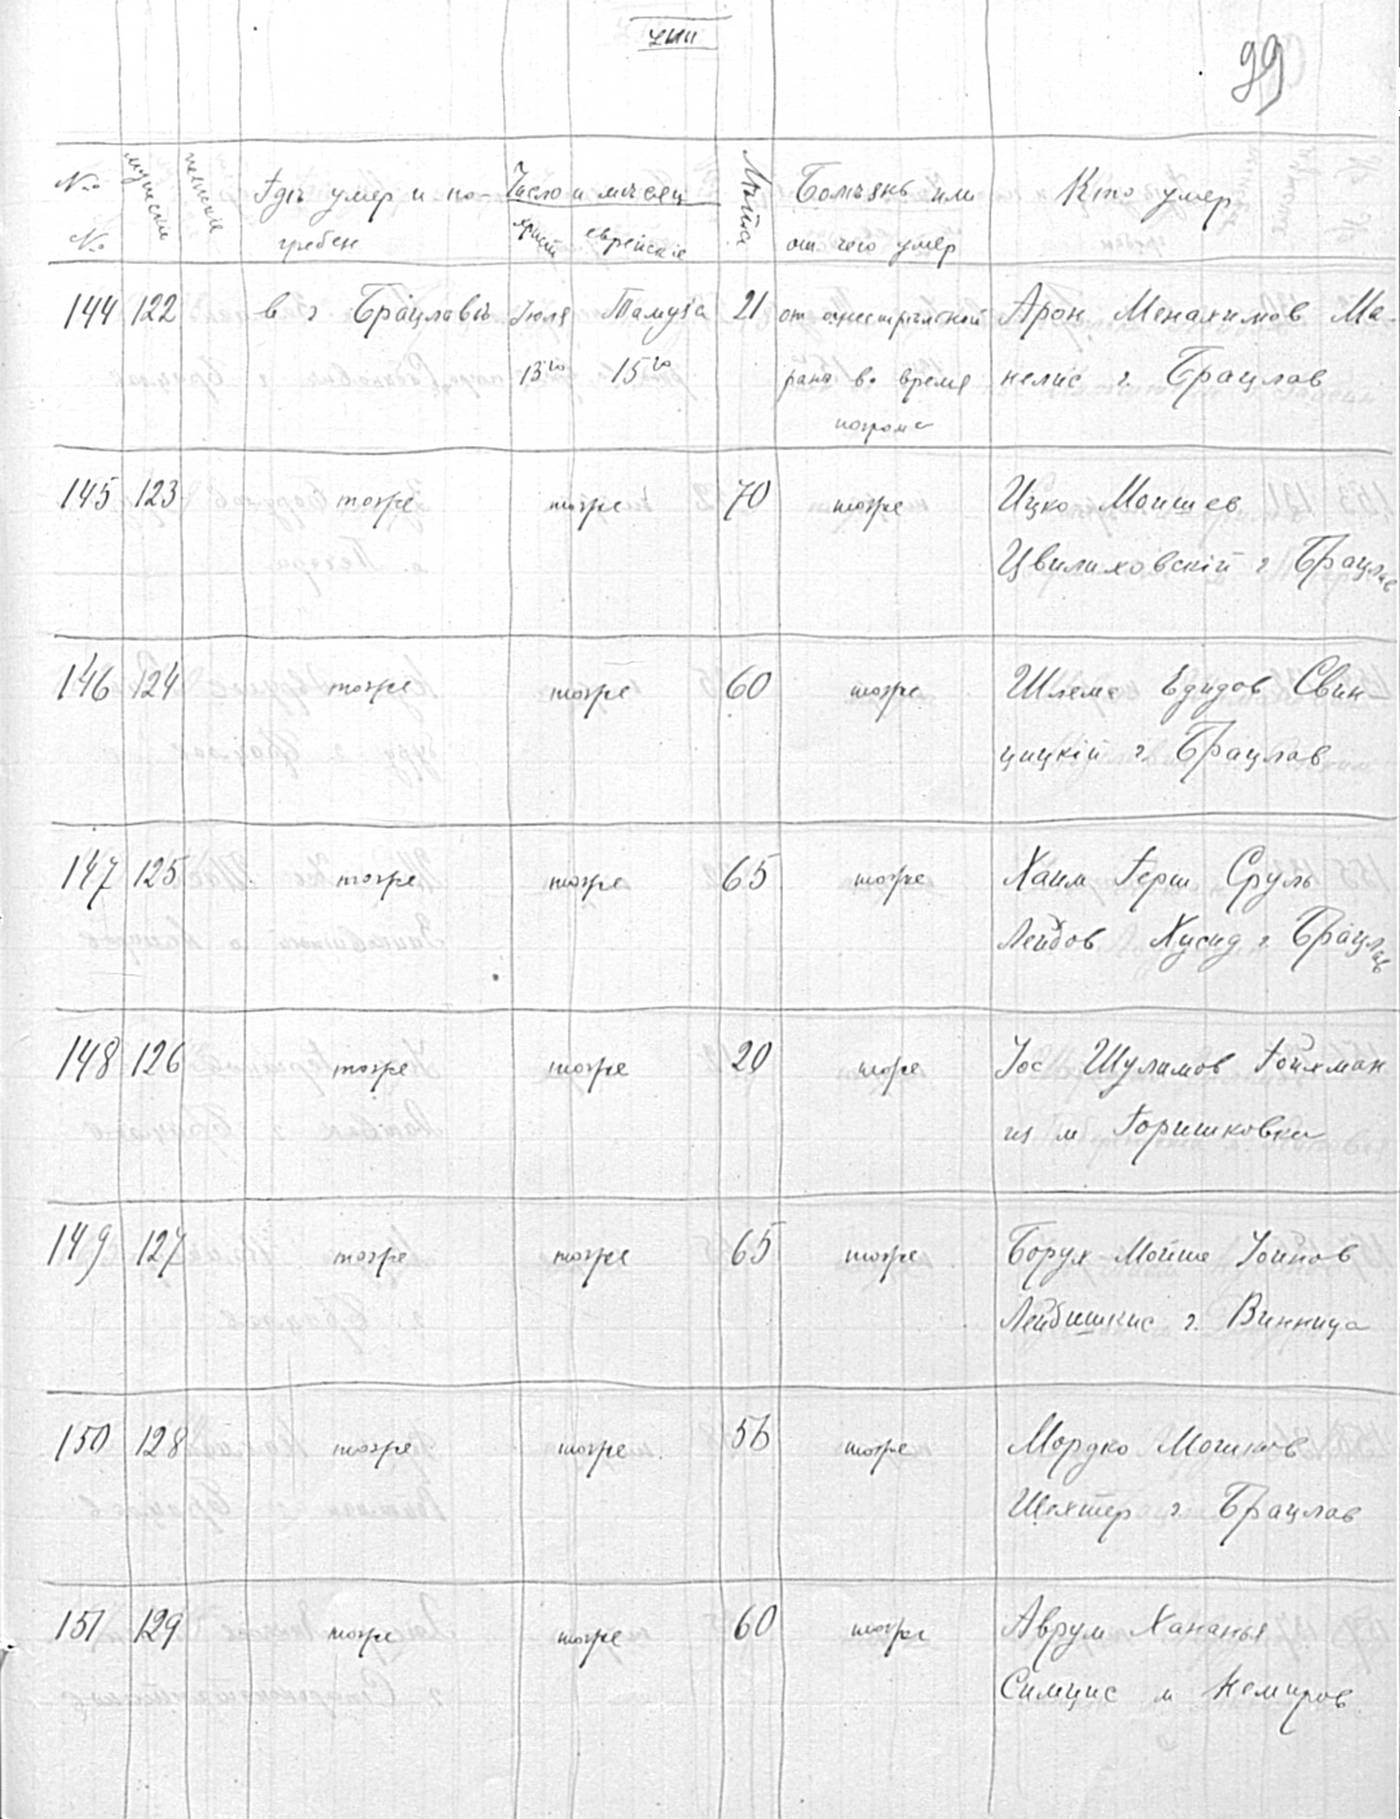 99
№ № мужски женски Гдѣ умер и по- Число и мѣсяц Лѣта Болѣзнь или Кто умер
гребен христ еврейскіе от чего умер
144 122 в г Брацлавѣ Іюля Тамуза 21 от огнестрѣльной Арон Менахимов Ма-
13го 15го раны во время нелис г. Брацлав
погрома
145 123 тоже тоже 70 тоже Ицко Моишев
Цвилиховскій г Брацлав
146 124 тоже тоже 60 тоже Шлема Едидов Свин-
цицкій г. Брацлав
147 125 тоже тоже 65 тоже Хаим Герш Сруль
Лейбов Хусид г. Брацлав
148 126 тоже тоже 20 тоже Іос Шулимов Гойхман
из м Горишковки
149 127 тоже тоже 65 тоже Борух-Мойше Іойнов
Лейбишкис г. Винница
150 128 тоже тоже 56 тоже Мордко
Шехтер г. Брацлав
151 129 тоже тоже 60 тоже Аврум Хананья
Симцис м Немиров